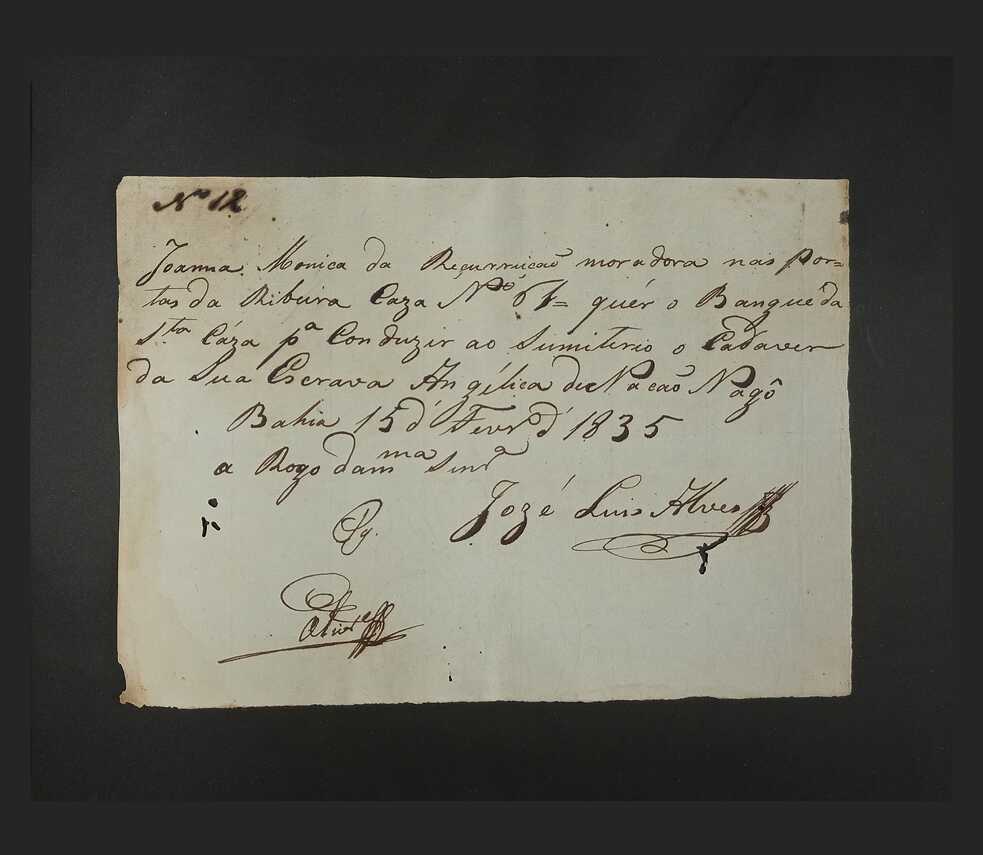 Nº 12
Joanna Monica da Reçurruicaõ moradora nas Por=
tas da Ribeira Caza Nº 61= quér o Bangue da
Sta Cáza pª Conduzir ao Sumiterio o Cadaver
da Sua Escrava Angélica de Nacaõ Nagô
Bahia 15 d' Fevrº d' 1835
a Rogo da mma Snrª
Jozé Luis Alves
Pg.